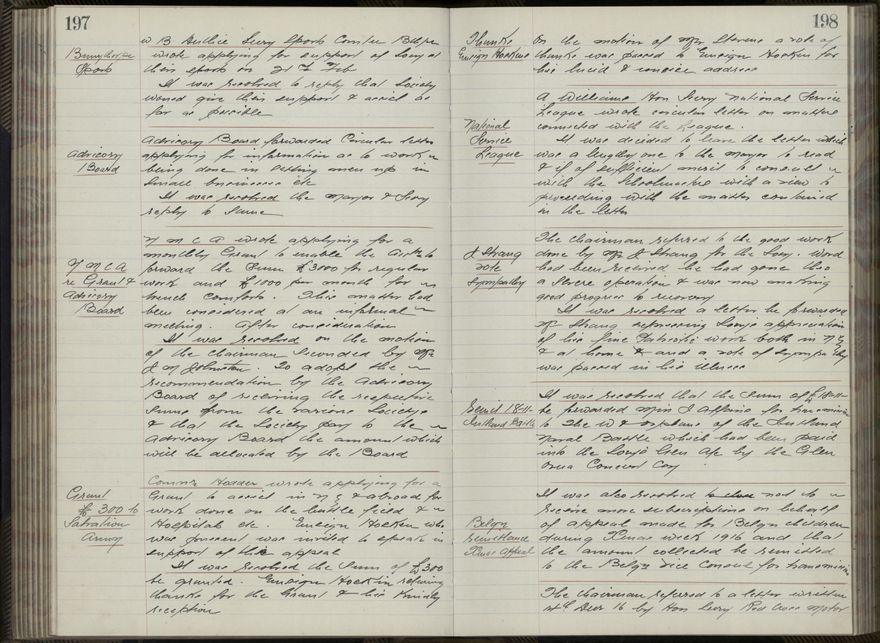 197
w B Guthrie Secy Sports Comtee
wrote applying for support of Socy at
their sports on 21st Feb
It was resolved to reply that Society
would give their support & assist as
far as possible
Sports
Advisory
Board
Advisory Board forwarded Circular letter
applying for information as to work
being done in setting men up in
small businesses etc
It was resolved the Mayor & Secy
reply to same
Y M C A
re Grant &
Advisory
Board
Y M C A wrote applying for a
monthly Grant to enable the to
forward the sum £3000 for regular
work and £1000 per month for
comforts. This matter had
been considered at an informal
meeting. After consideration
It was resolved on the motion
of the Chairman seconded by Mr
J M Johnston to adopt the
recommendation by the Advisory
Board of receiving the respective
sums from the various Societys
& that the Society pay to the
Advisory Board the amount which
will be allocated by the Board
Grant
£300 to
Salvation
Army
Commr Hodder wrote applying for a
Grant to assist in N Z & abroad for
work done on the battle field &
Hospitals etc. Ensign Hocken who
was present was invited to speak in
support of the appeal
It was resolved the sum of £300
be granted. Ensign Hockin returning
thanks for the Grant & his kindly
reception
198
Thanks
Ensign Hocken
On the motion of Mr Stevens a vote of
thanks was passed to Ensign Hocken for
his lucid & concise address
National
Service
League
A Williams Hon Secy National Service
League wrote circular letter on matters
connected with the League.
It was decided to leave the letter which
was a lengthy one to the Mayor to read
& if of sufficient merit to consult
with the Schoolmaster with a view to
proceeding with the matter contained
in the letter
J Strang
vote
Sympathy
The Chairman referred to the good work
done by Mr J Strang for the Socy. Word
had been received he had gone thro
a severe operation & was now making
good progress to recovery
It was resolved a letter be forwarded
Mr Strang expressing Socys appreciation
of his fine Patriotic work both in N Z
& at home & and a vote of sympathy
was passed in his illness
Remit 18-11-
Jutland Battle
It was resolved that the sum of
be forwarded Miss J for transmission
to the W & orphans of the Jutland
Naval Battle which had been paid
into the Socys Gen a/c by the Glen
Oroua Concert Coy.
Belgn
remittance
Xmas Appeal
It was also resolved not to
receive more subscriptions on behalf
of appeal made for Belgn children
during Xmas week 1916 and that
the amount collected be remitted
to the Belgn Vice Consul for transmission
The Chairman referred to a letter written
Decr 16 by Hon Secy Red Cross Motor